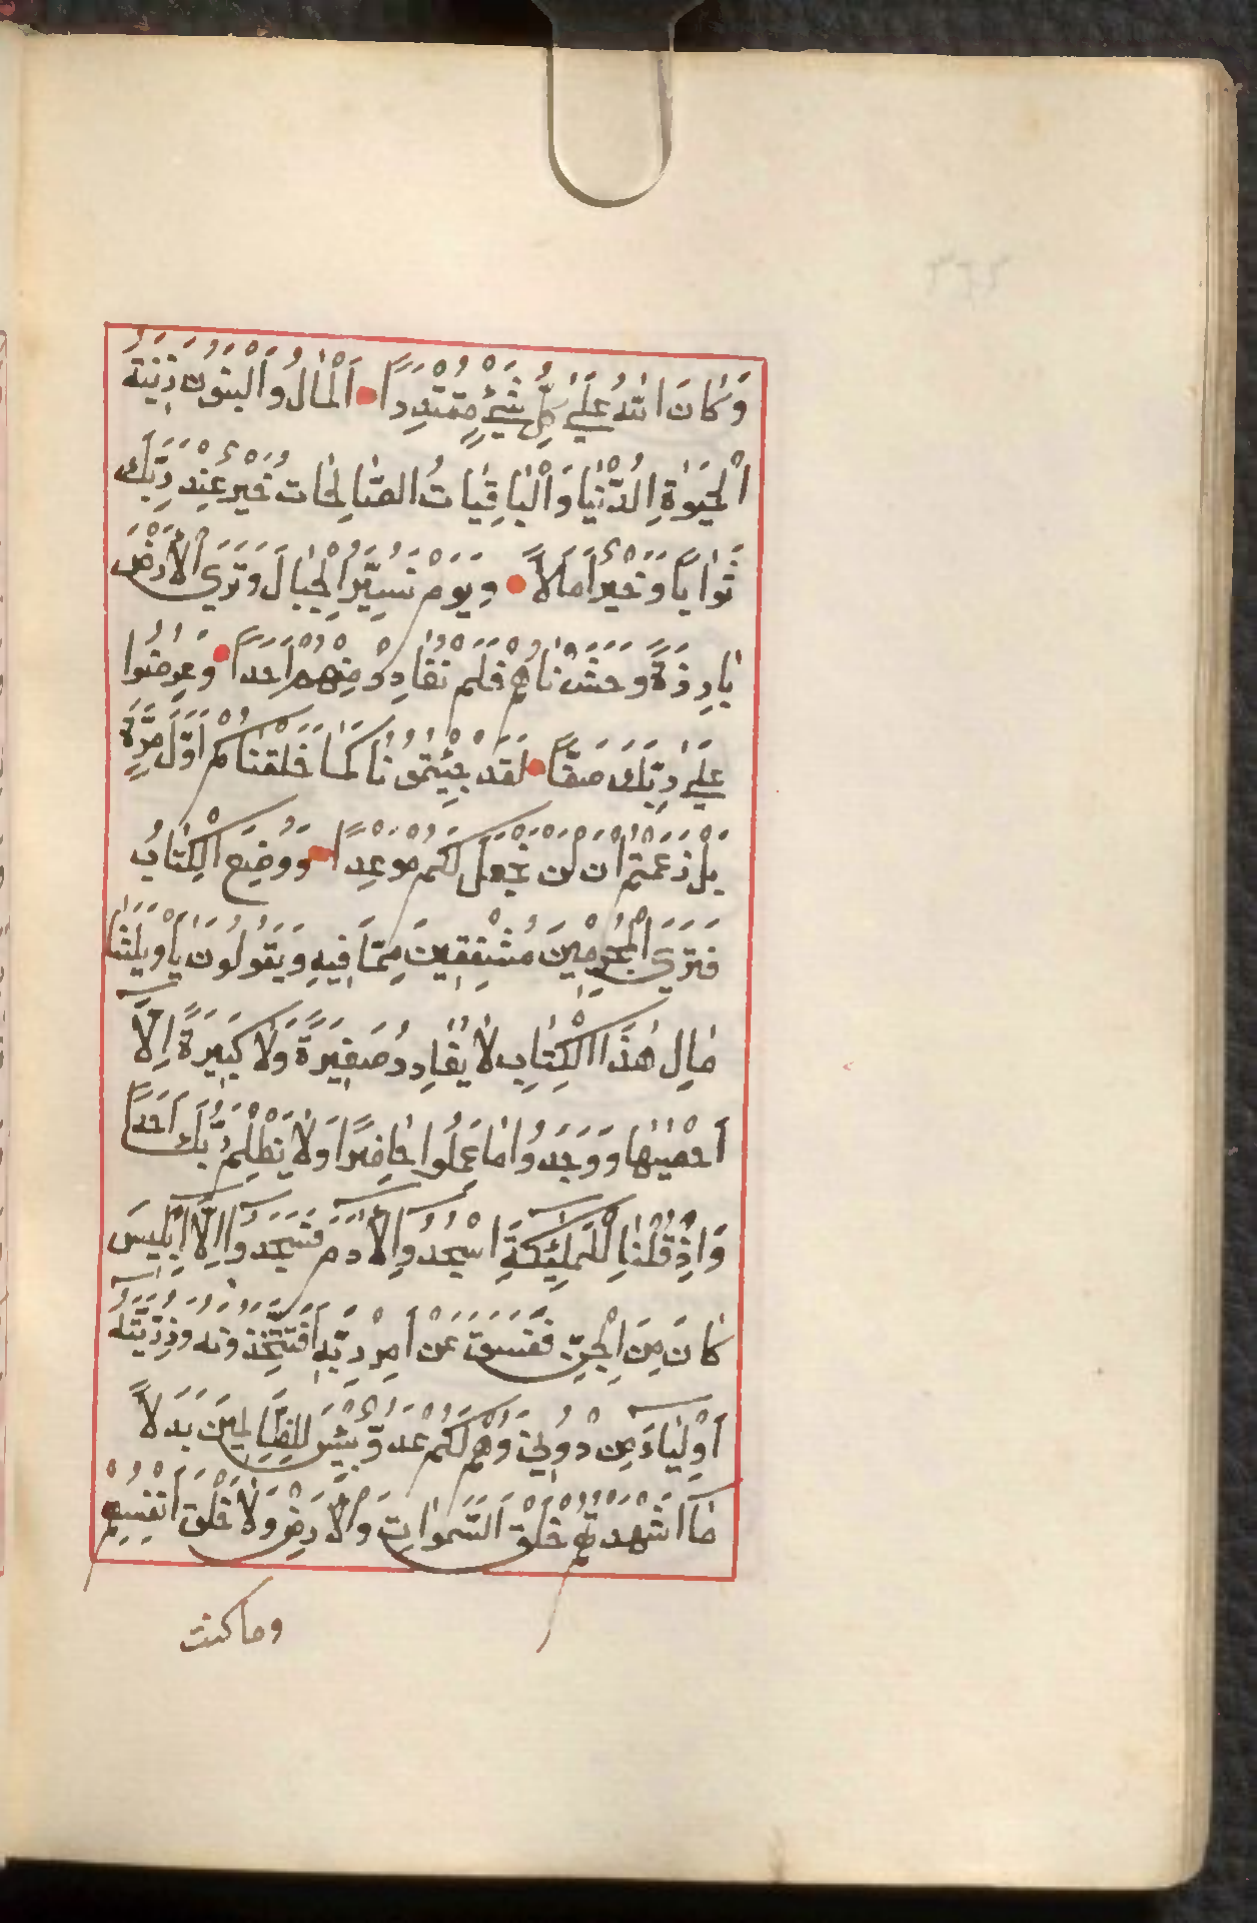 وَكَانَ اللهُ عَلَىٰ كُلِّ شَيْءٍ مُقْتَدِرًا اَلْمَالُ وَالْبَنُونَ زِينَةُ
الْحَيٰوةِ الدُّنْيَا وَالْبَاقِيَاتُ الصَّالِحَاتُ خَيْرٌ عِنْدَ رَبِّكَ
ثَوَابًا وَخَيْرٌ اَمَلاً وَيَوْمَ نُسَيِّرُ الْجِبَالَ وَتَرَى الْاَرْضَ
بَارِزَةً وَحَشَرْنَاهُمْ فَلَمْ نُغَادِرْ مِنْهُمْ اَحَدًا وَعُرِضُوا
عَلَىٰ رَبِّكَ صَفًّا لَقَدْ جِئْتُمُونَا كَمَا خَلَقْنَاكُمْ اَوَّلَ مَرَّةٍ
بَلْ زَعَمْتُمْ اَنْ لَنْ نَجْعَلَ لَكُمْ مَوْعِدًا وَوُضِعَ الْكِتَابُ
فَتَرَى الْمُجْرِمِينَ مُشْفِقِينَ مِمَّا فِيهِ وَيَقُولُونَ يَا وَيْلَتَنَا
مَالِ هٰذَا الْكِتَابِ لَا يُغَادِرُ صَغِيرَةً وَلَا كَبِيرَةً اِلَّا
اَحْصٰيهَا وَوَجَدُوا مَا عَمِلُوا حَاضِرًا وَلَا يَظْلِمُ رَبُّكَ اَحَدًا
وَاِذْ قُلْنَا لِلْمَلٰئِكَةِ اسْجُدُوا لِاٰدَمَ فَسَجَدُوا اِلَّا اِبْلِيسَ
كَانَ مِنَ الْجِنِّ فَفَسَقَ عَنْ اَمْرِ رَبِّهِ اَفَتَتَّخِذُونَهُ وَذُرِّيَّتَهُ
اَوْلِيَاءَ مِنْ دُونِي وَهُمْ لَكُمْ عَدُوٌّ بِئْسَ لِلظَّالِمِينَ بَدَلاً
مَا اَشْهَدْتُهُمْ خَلْقَ السَّمٰوَاتِ وَالْاَرْضِ وَلَا خَلْقَ اَنْفُسِهِمْ
وما كنت